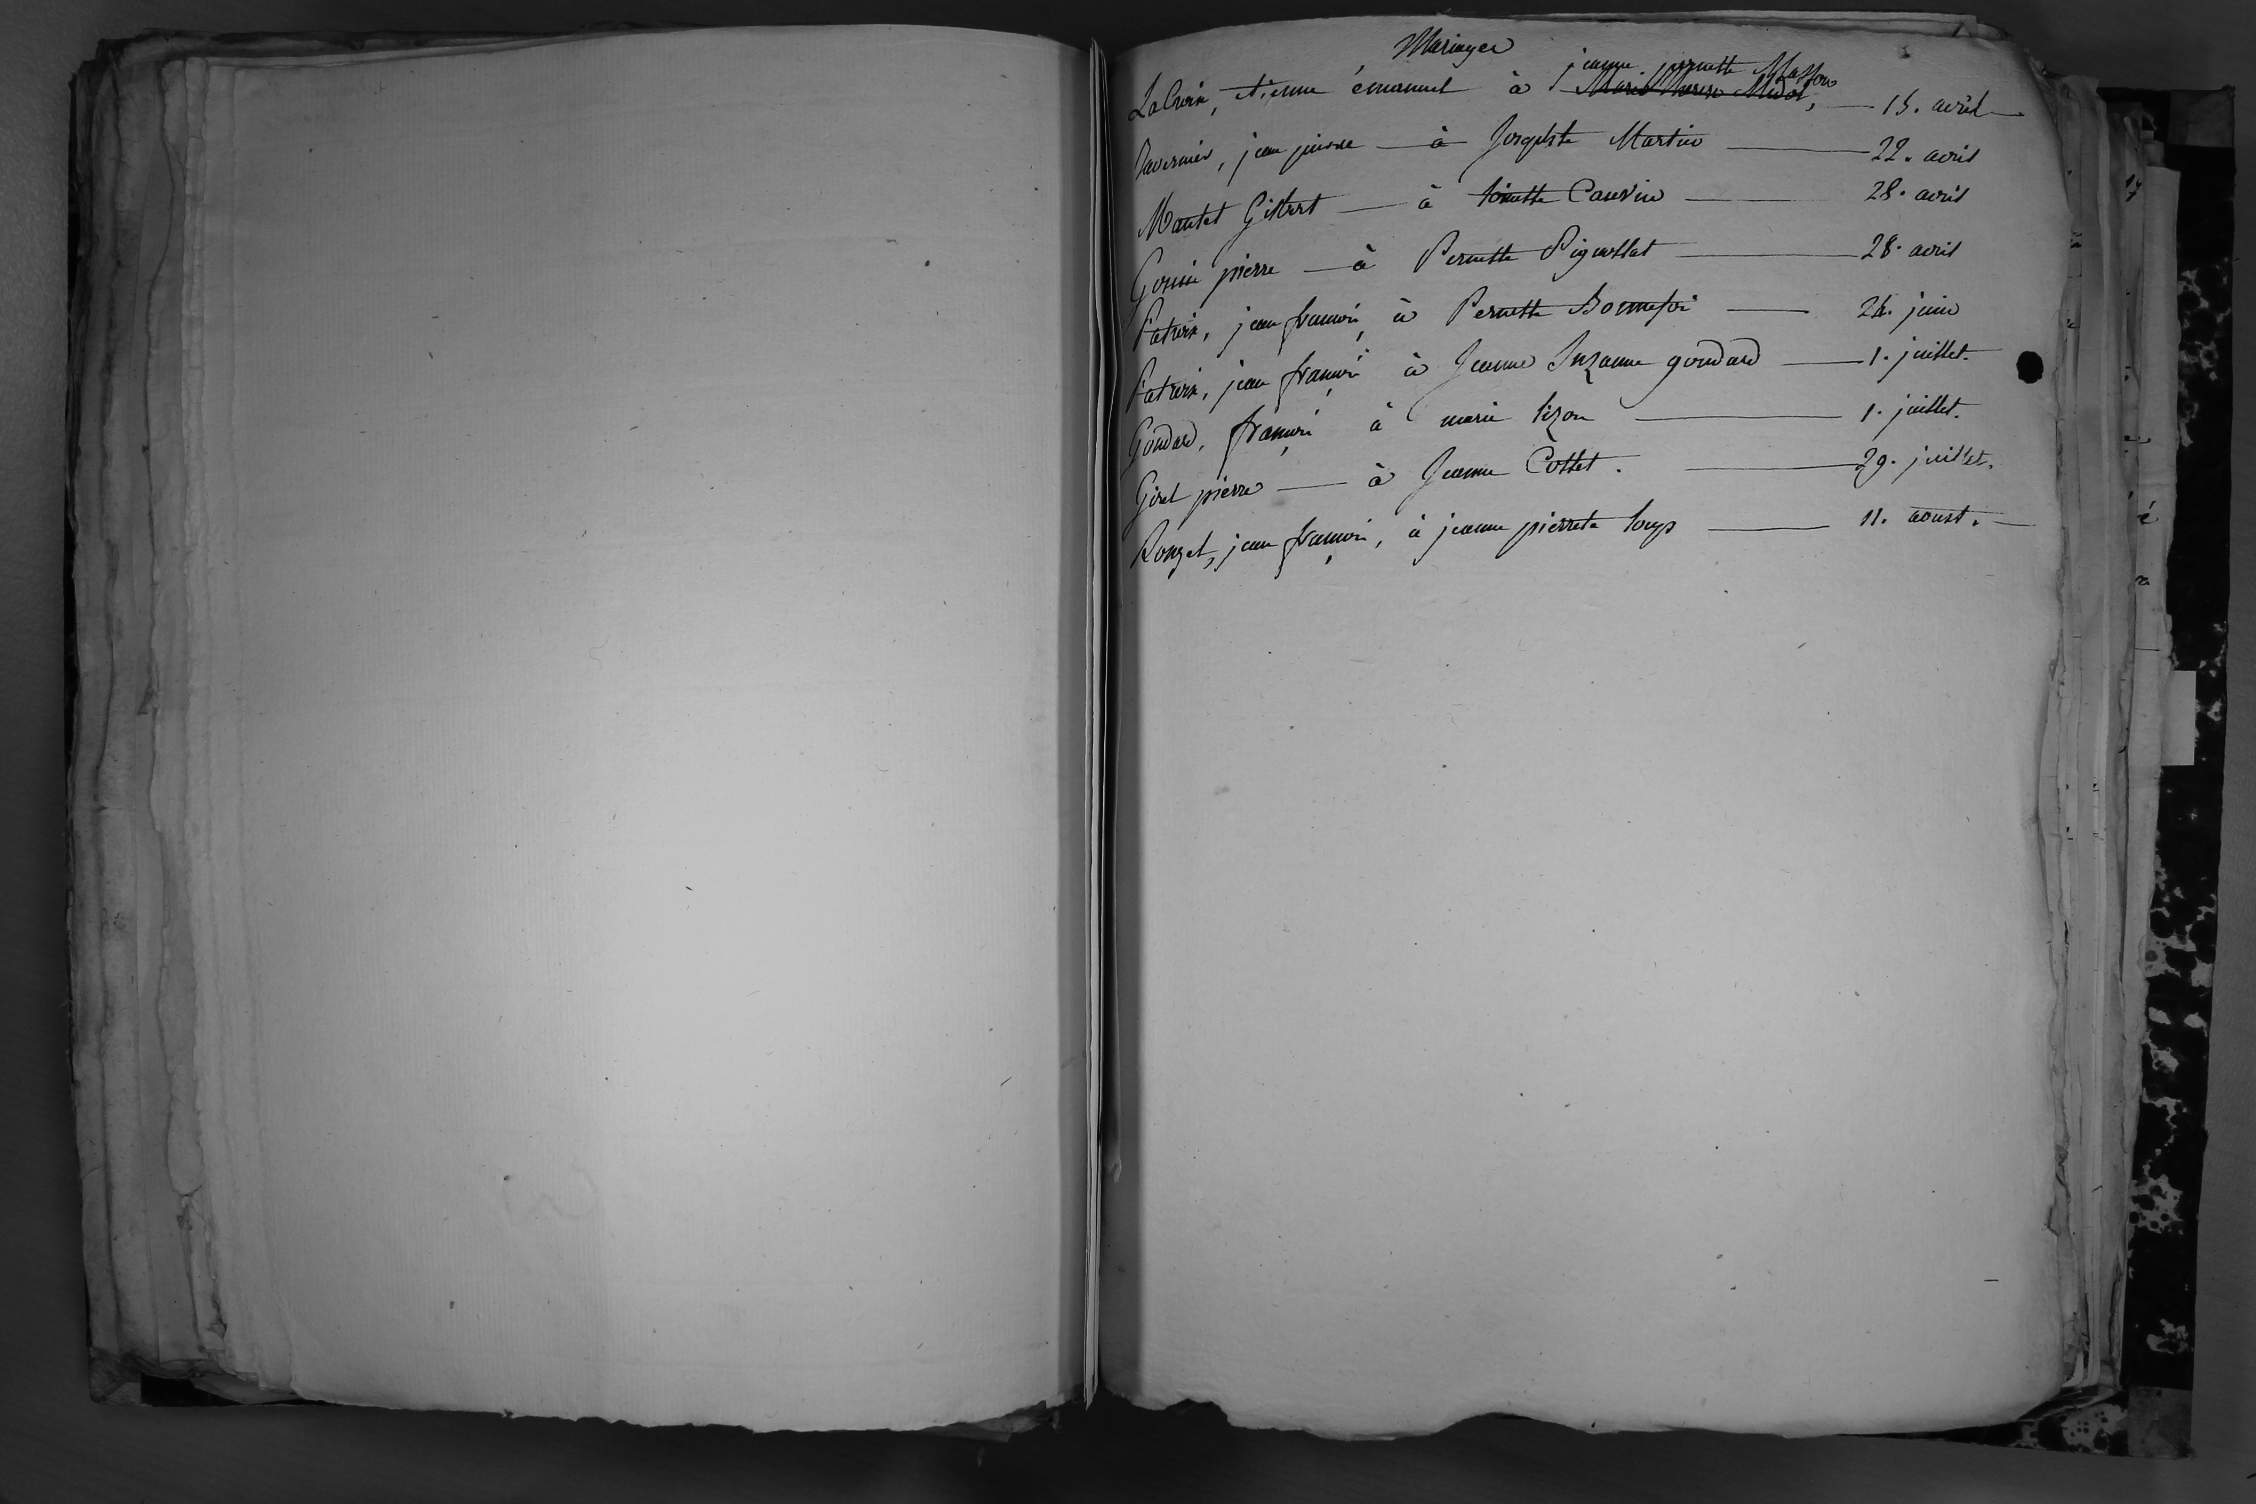 Mariages
jeanne pernette Masson
LaCroix, etienne émanuel à Marie Therese Midol, — 15. avril
Tavernier, jean pierre — à Josephte Martin — 22. avril
Mantet Gilbert — à toinette Cauvin — 28. avril
Gouin pierre — à Pernette Piguellet — 28. avril
Patroix, jean françois à Pernette Bonnefoi — 24. juin
Patroix, jean françois à Jeanne Suzanne goudard — 1. juillet.
Goudard, françois à marie lizon — 1. juillet.
Girel pierre — à Jeanne Collet. — 29. juillet.
Rouget, jean françois, à jeanne pierrete loup — 11. aoust.